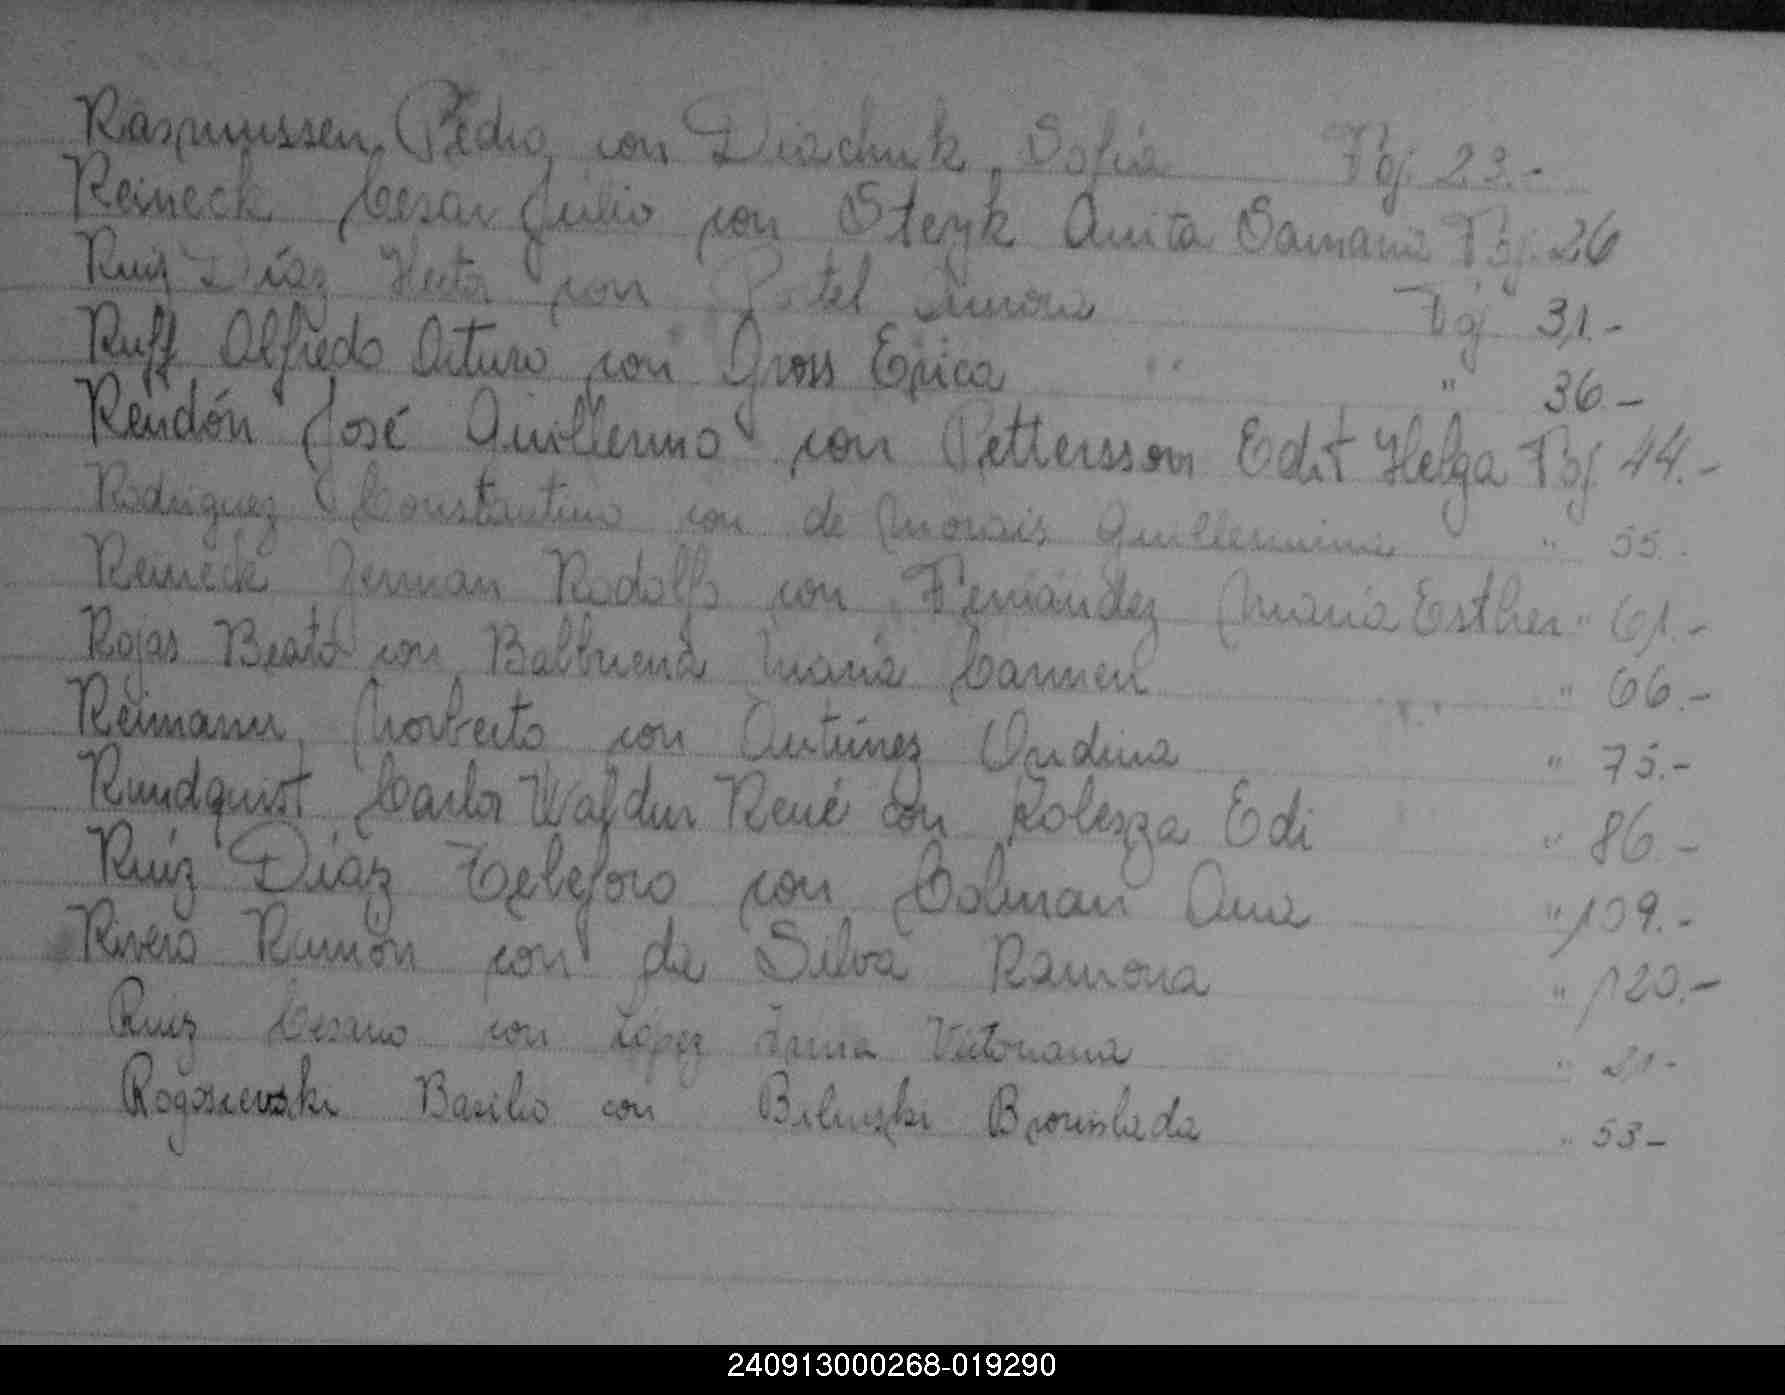 Rasmussen, Pedro con Diachuk Sofia Foj. 23.-
Reineck Cesar Julio con Steyk Anita Samania Foj. 26
Ruiz Díaz Hector con Portel Ramona Foj 31.-
Ruff Alfredo Arturo con Gross Erica " 36.-
Rendón José Guillermo con Pettersson Edit Helga Foj. 44.-
Rodriguez Constantino con de Morais Guillermina " 55.-
Reineck German Rodolfo con Fernández María Esther " 61.-
Rojas Beato con Balbuena María Carmen " 66.-
Reimann, Norberto con Antúnez Ondina " 75.-
Rundquist Carlos Waldur René con Kolesza Edi " 86.-
Ruíz Díaz Telesforo con Colman Ana " 109.-
Rivero Ramón con da Silva Ramona " 120.-
Ruiz Cesario con López Irma Victoriana " 21.-
Rogosievski Basilio con Biluski Bronislada " 53-
240913000268-019290